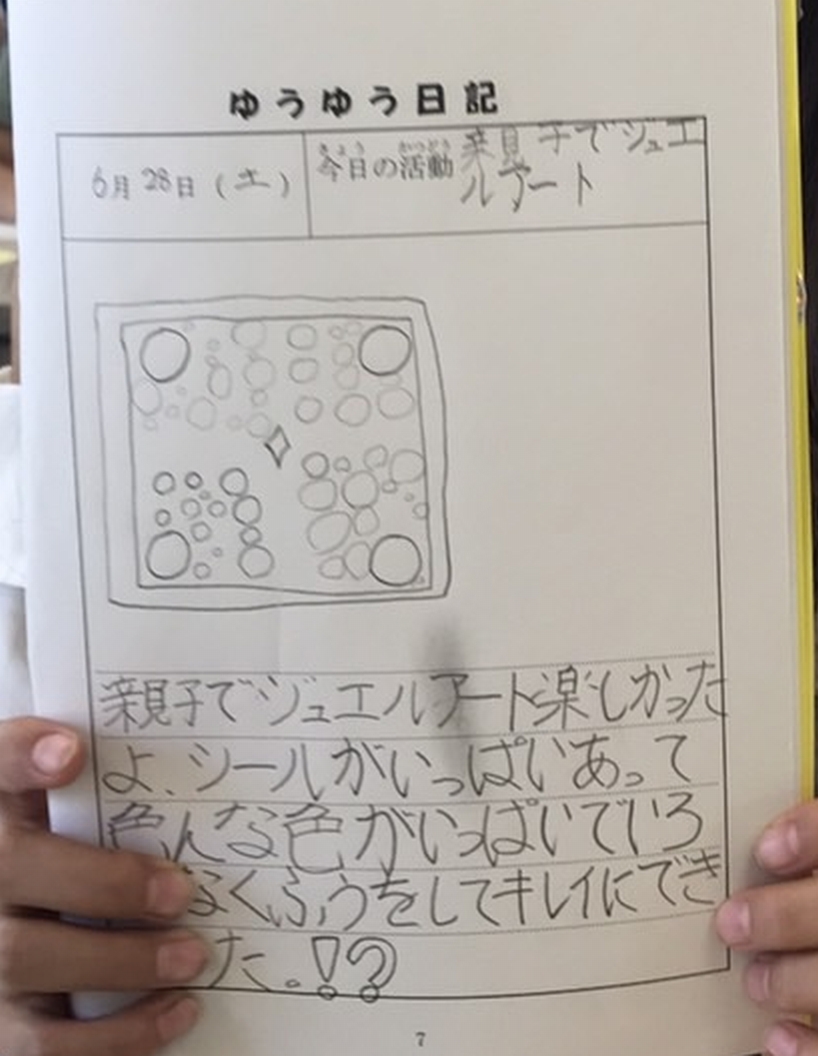 ゆうゆう日記
6月28日（土）
きょう かつどう
今日の活動 親子でジュエ
ルアート
親子でジュエルアート楽しかった
よ、シールがいっぱいあって
色んな色がいっぱいでいろ
なくふうをしてキレイにでき
た.!?
7